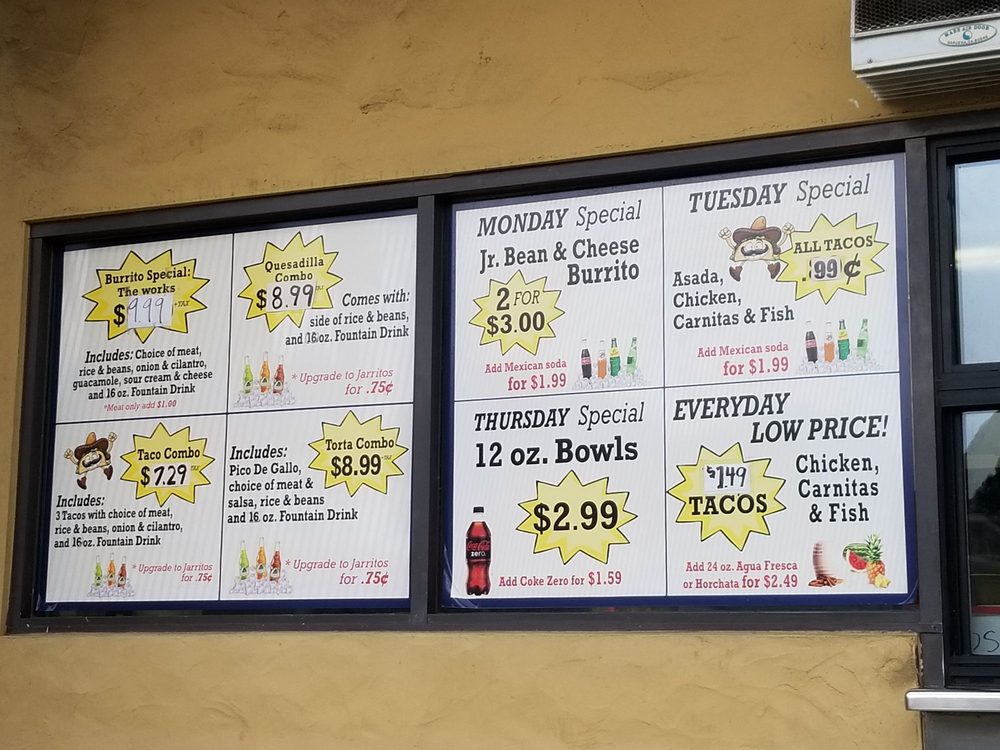 Burrito Special:
The works
$9.99 +TAX
Includes: Choice of meat,
rice & beans, onion & cilantro,
guacamole, sour cream & cheese
and 16 oz. Fountain Drink
*Meat only add $1.00
Quesadilla
Combo
$8.99 +TAX
Comes with:
side of rice & beans,
and 16oz. Fountain Drink
* Upgrade to Jarritos
for .75¢
Taco Combo
$7.29 +TAX
Includes:
3 Tacos with choice of meat,
rice & beans, onion & cilantro,
and 16oz. Fountain Drink
* Upgrade to Jarritos
for .75¢
Torta Combo
$8.99 +TAX
Includes:
Pico De Gallo,
choice of meat &
salsa, rice & beans
and 16 oz. Fountain Drink
* Upgrade to Jarritos
for .75¢
MONDAY Special
Jr. Bean & Cheese
Burrito
2 FOR
$3.00
Add Mexican soda
for $1.99
TUESDAY Special
ALL TACOS
.99 ¢
Asada,
Chicken,
Carnitas & Fish
Add Mexican soda
for $1.99
THURSDAY Special
12 oz. Bowls
$2.99
Coca-Cola
zero
Add Coke Zero for $1.59
EVERYDAY
LOW PRICE!
$1.49
TACOS
Chicken,
Carnitas
& Fish
Add 24 oz. Agua Fresca
or Horchata for $2.49
MARS AIR DOOR